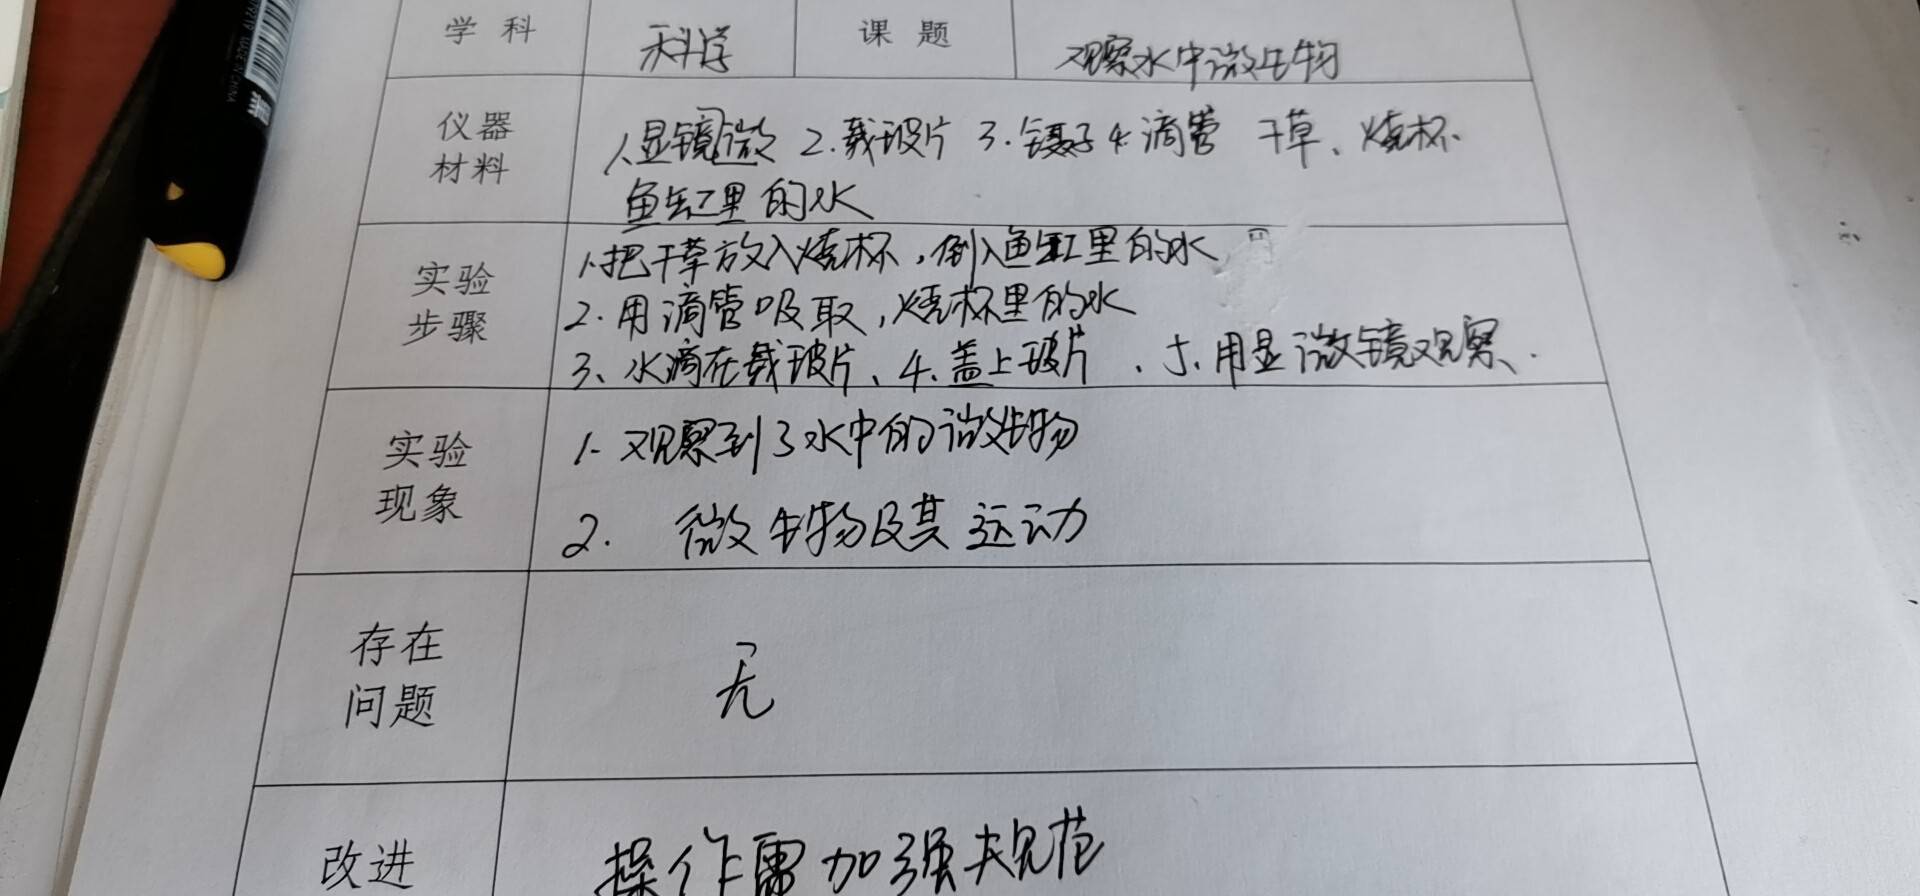 学科 科学 课题 观察水中微生物
仪器
材料
1、显镜微 2.载玻片 3.镊子 4.滴管 干草、烧杯.
鱼缸里的水
实验
步骤
1.把干草放入烧杯,倒入鱼缸里的水
2.用滴管吸取,烧杯里的水
3、水滴在载玻片、4、盖上玻片、5、用显微镜观察、.
实验
现象
1.观察到了水中的微生物
2. 微生物及其运动
存在
问题
无
改进
操作需加强规范